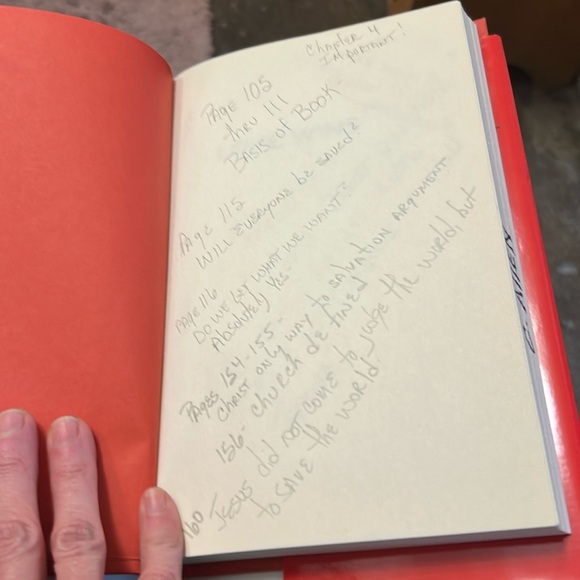 Chapter 4
Important!
Page 105
thru 111
Basis of Book
Page 115
Will everyone be saved?
Page 116
Do we get what we want?
Absolutely Yes.
Pages 154-155-
Christ only way to salvation argument
156- Church defined
160 Jesus did not come to judge the world, but
to save the world